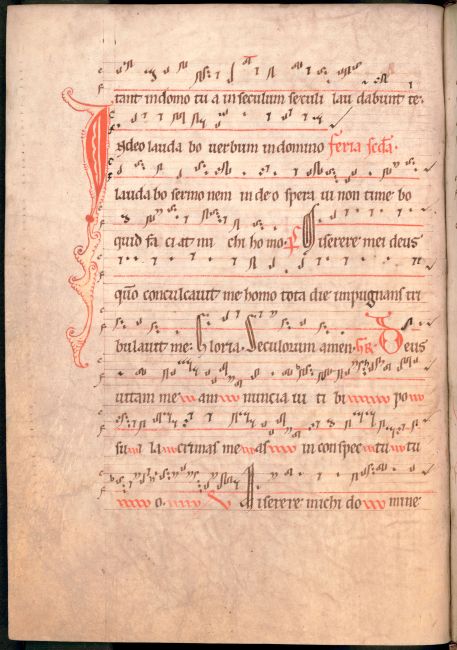 tant in domo tu a in seculum seculi lau dabunt te·
In deo lauda bo verbum in domino feria scda
lauda bo sermo nem in de o spera vi non time bo
quid fa ci at mi chi ho mo· ps Miserere mei deus
qm conculcavit me homo tota die inpugnans tri
bulavit me· Gloria· Seculorum amen· Deus
vitam me am nuncia vi ti bi po
su i la crimas me as in con spec tu tu
o· V Miserere michi do mine